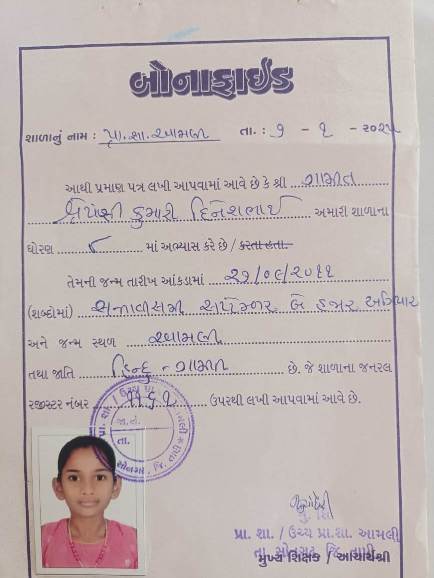 બોનાફાઈડ
શાળાનું નામ : પ્રા. શા. આમલી તા. : ૧ - ૧ - ૨૦૨૫
આથી પ્રમાણ પત્ર લખી આપવામાં આવે છે કે શ્રી ગામીત
કુમારી દિનેશભાઈ અમારી શાળાના
ધોરણ ૮ માં અભ્યાસ કરે છે / કરતા હતા.
તેમની જન્મ તારીખ આંકડામાં ૨૭/૦૯/૨૦૧૧
(શબ્દોમાં) સત્તાવીસમી સપ્ટેમ્બર બે હજાર અગિયાર
અને જન્મ સ્થળ આમલી
તથા જાતિ હિન્દુ - ગામીત છે. જે શાળાના જનરલ
રજીસ્ટર નંબર ૧૧૬૧ ઉપરથી લખી આપવામાં આવે છે.
જા.નં.
તા.
સોનગઢ, જિ.
પ્રા. શા. / ઉચ્ચ પ્રા.શા. આમલી
તા. સોનગઢ જિ. તાપી
મુખ્ય શિક્ષક / આચાર્યશ્રી